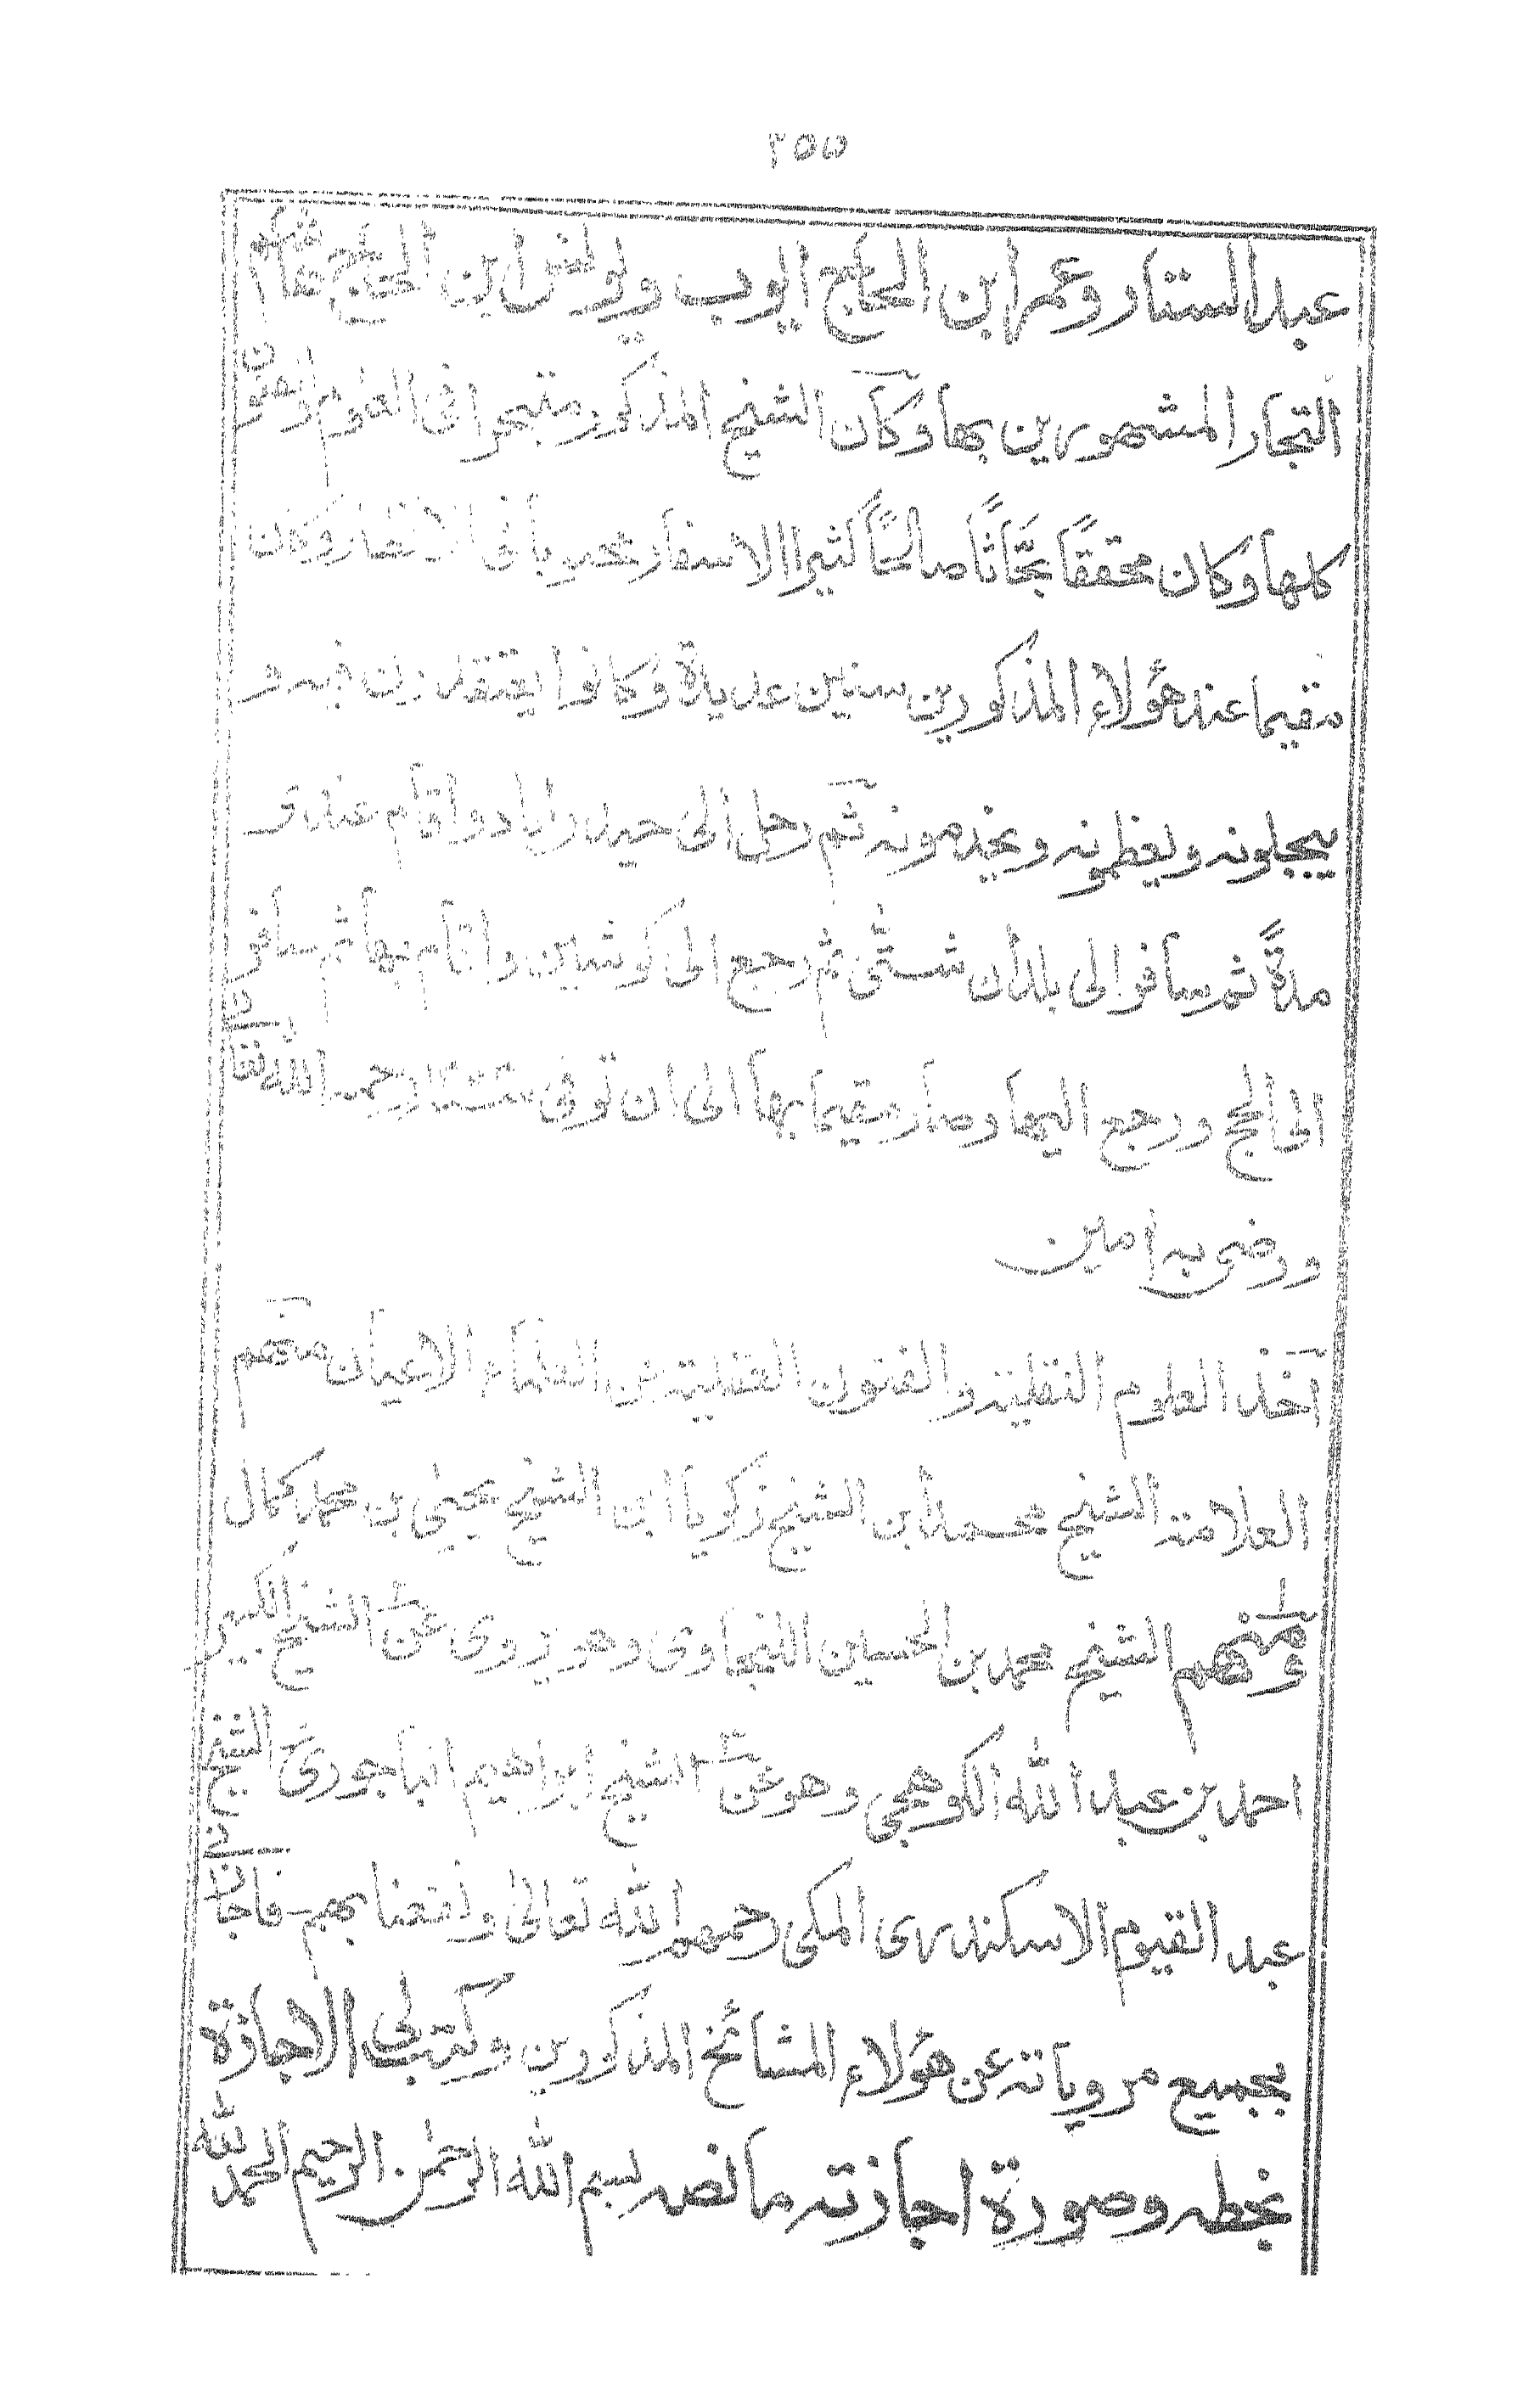 ٢٥٥
عبد الستار وعمر ابن الحاج ايوب ويونس ابن الحاج
التجار المشهورين بها وكان الشيخ المذكور متبحرا فى العلوم والفنون
كلها وكان محققًا بحّاثًا صالحًا كثير الاسفار وكان
مقيما عند هؤلاء المذكورين سنين عديدة وكانوا يعتقدون فيه و
يبجلونه ويعظمونه ويخدمونه ثم رحل الى حيدراباد واقام عند
مدةً ثم سافر الى بلدان شتّى ثم رجع الى كوشين واقام بها ثم سافر
الى الحج ورجع اليها وصار مقيما بها الى ان توفى رحمه الله تعالى
ورضى به امين
آخذ العلوم النقلية والفنون العقلية من العلماء الاعيان منهم
العلامة الشيخ محمد ابن الشيخ زكريا ابن الشيخ يحيىٰ بن محمد كمال
ومنهم الشيخ محمد بن الحسين وهو يروى عن الشيخ الكبير
احمد بن عبد الله الكوهجى وهو عن الشيخ ابراهيم الباجورى الشيخ
عبد القيوم الاسكندرى المكى رحمهم الله تعالىٰ ونفعنا بهم فاجازنى
بجميع مروياته عن هؤلاء المشائخ المذكورين وكتب لى الاجازة
بخطه وصورة اجازته ما نصه بسم الله الرحمٰن الرحيم الحمد لله